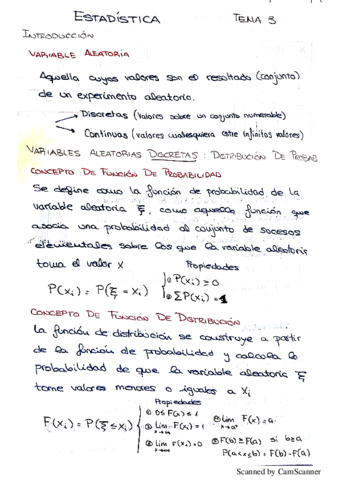 ESTADÍSTICA TEMA 3
INTRODUCCIÓN
VARIABLE ALEATORIA
Aquella cuyos valores son el resultado (conjunto)
de un experimento aleatorio.
→ Discretas (Valores sobre un conjunto numerable)
→ Continuas (Valores cualesquiera entre infinitos valores)
VARIABLES ALEATORIAS DISCRETAS: DISTRIBUCIÓN DE PROBAB
CONCEPTO DE FUNCIÓN DE PROBABILIDAD
Se define como la función de probabilidad de la
variable aleatoria ξ, como aquella función que
asocia una probabilidad al conjunto de sucesos
elementales sobre los que la variable aleatoria
toma el valor x
Propiedades
P(xᵢ) = P(ξ = xᵢ) ① P(xᵢ) ≥ 0
② ΣP(xᵢ) = 1
CONCEPTO DE FUNCIÓN DE DISTRIBUCIÓN
La función de distribución se construye a partir
de la función de probabilidad y calcula la
probabilidad de que la variable aleatoria ξ
tome valores menores o iguales a xᵢ
Propiedades
F(xᵢ) = P(ξ ≤ xᵢ) ① 0 ≤ F(x) ≤ 1
② Lim F(xᵢ) = 1
③ Lim F(xᵢ) = 0
④ Lim F(x) = a
⑤ F(b) ≥ F(a) si b ≥ a
P(a < x ≤ b) = F(b) - F(a)
Scanned by CamScanner